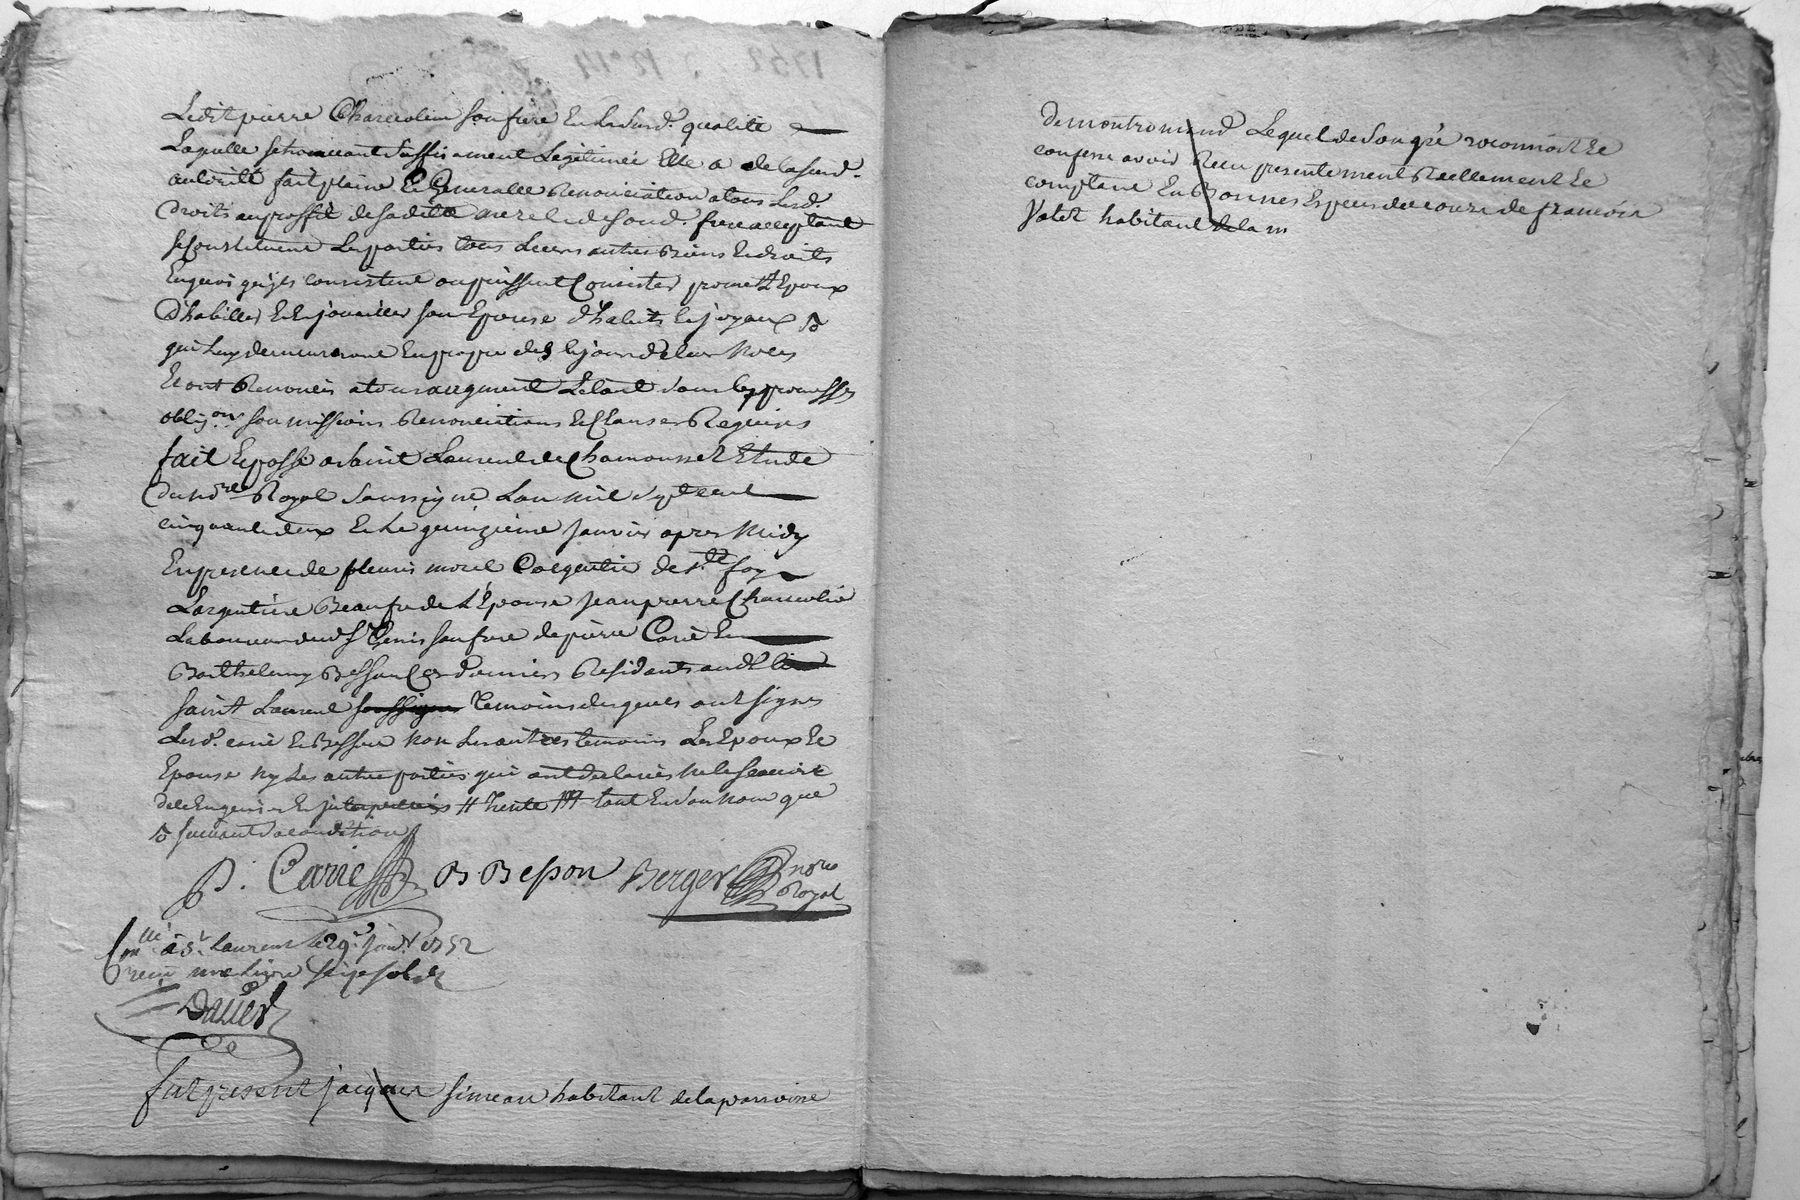 Ledit pierre Charcolin son frere En la susd. qualité
Laquelle se trouvant suffisament Legitimée Elle a de la susd.
autorité fait plaine Et Generalle Renonciation a tous Lesd.
Droits au proffit de sadite mere Et de sond. frere acceptant
se constituent Les parties tous Leurs autres Biens Et droits
En quoi qu'ils consistent ou puissent Consister promet L'Epoux
D'habiller Et Enjoueiller son Epouse d'habits Et joyaux
qui Luy demeureront En propre des le jour de leur Noces
Et ont Renoncés a tout augment Le tout sous Les promesses
oblig.ons soumissions Renonciations Et Clauses Requises
fait Et passé a Saint Laurent de Chamousset Etude
du no.re Royal soussigné L'an mil sept cent
cinquante deux Et Le quinzieme janvier apres Midy
En presence de fleuris morel Charpentier de s.te foy
Largentiere Beaufre de L'Epouse jean pierre Charcolin
Laboureur dud. S.t Genis son frere de pierre Carié Et
Barthelemy Besson Ces derniers Residants aud. lieu
saint Laurent soussignés temoins desquels ont signés
Lesd. carié Et Besson Non Les autres temoins Les Epoux Et
Epouse ny Les autres parties qui ont declarés ne le scavoir
de ce Enquis Et interpellés # trente ## tant En son nom que
suivant sa condition
P. Carié B. Besson Berger no.re
Royal
Con.llé à S.t Laurent le 29.e janv. 1752
reçu une livre seize sols
Duvier
fut present jacques simean habitant de la parroisse
de montromand Lequel de son gré reconnoit Et
confesse avoir Receu presentement Reellement Et
comptant En Bonnes Especes de cours de francois
Valet habitant de la m